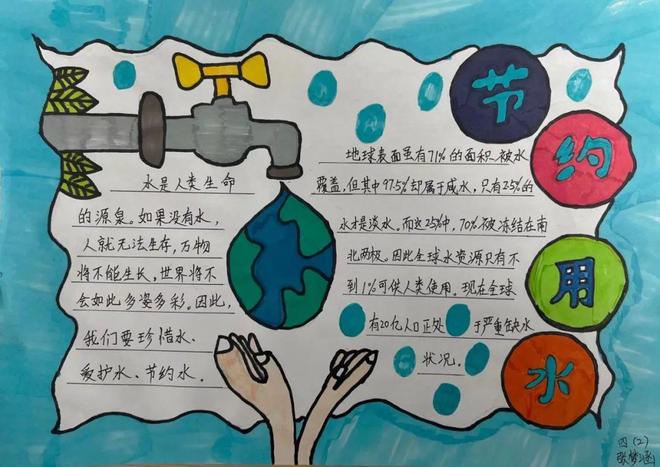 节
约
用
水
水是人类生命
的源泉。如果没有水，
人就无法生存，万物
将不能生长，世界将不
会如此多姿多彩。因此，
我们要珍惜水、
爱护水、节约水．
地球表面虽有71%的面积被水
覆盖，但其中97.5%却属于咸水，只有2.5%的
水才是淡水，而这2.5%中，70%被冻结在南
北两极。因此全球水资源只有不
到1%可供人类使用。现在全球
有20亿人口正处于严重缺水
状况．
四（2）
张梦涵